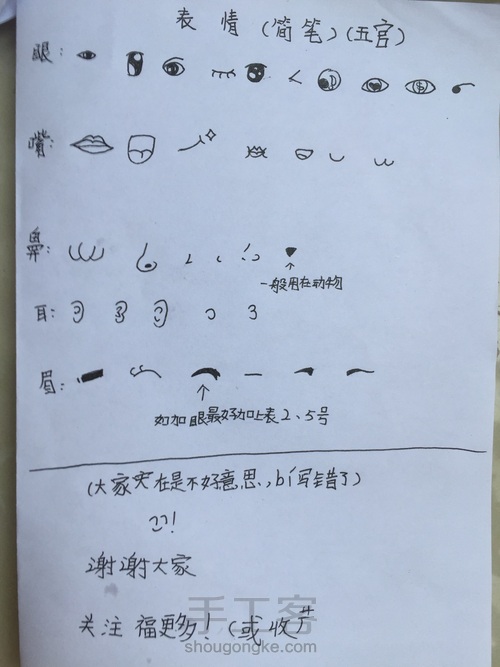 表情(简笔)(五官)
眼:
嘴:
鼻:
一般用在动物
耳:
眉:
如加眼最好加上表2、5号
(大家实在是不好意思,bì写错了)
!
谢谢大家
关注 福更多!(或收
手工客
shougongke.com